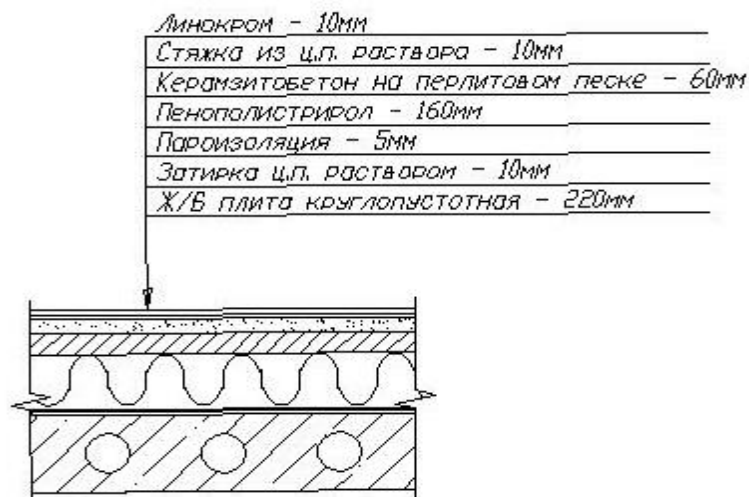 Линокром - 10мм
Стяжка из ц.п. раствора - 10мм
Керамзитобетон на перлитовом песке - 60мм
Пенополистрирол - 160мм
Пароизоляция - 5мм
Затирка ц.п. раствором - 10мм
Ж/Б плита круглопустотная - 220мм